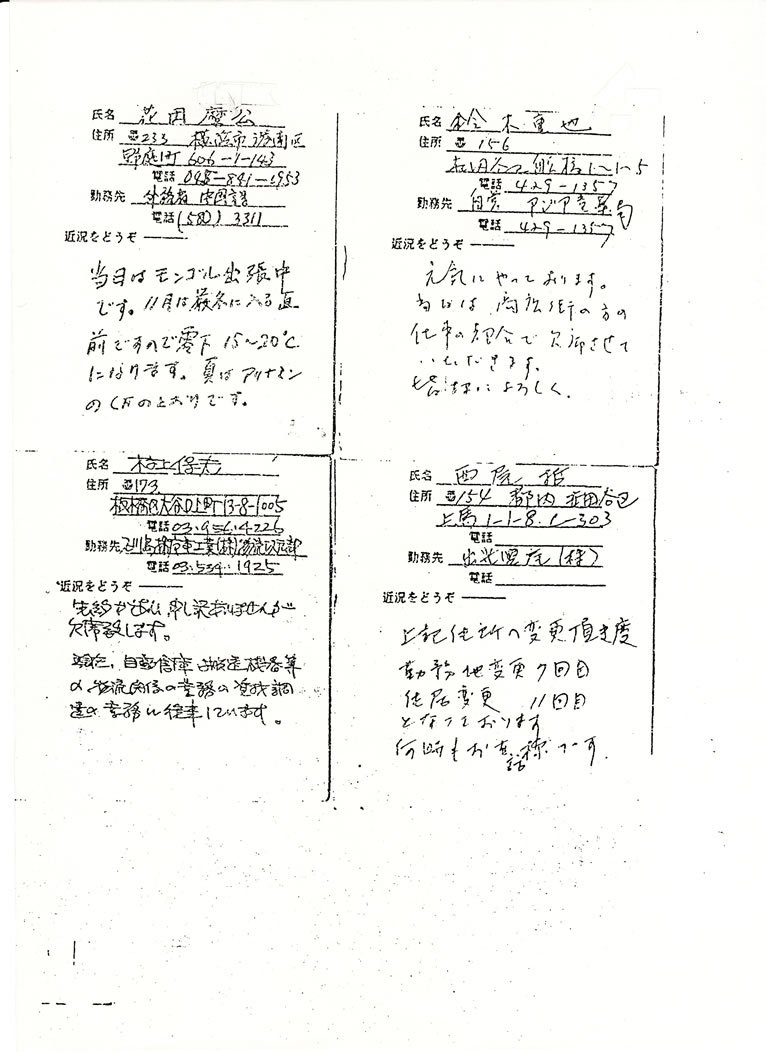 氏名 花田麿公
住所 〠233 横浜市港南区
野庭町 606-1-143
電話 045-841-1953
勤務先 外務省 中国課
電話 (580) 3311
近況をどうぞ
当日はモンゴル出張中
です。11月は厳冬に入る直
前ですので零下 15~20℃
になります。夏はアリナミン
のCMのとおりです。
氏名 鈴木重也
住所 〠156
世田谷区船橋1-1-5
電話 429-1357
勤務先 自営 アジア産業
電話 429-1357
近況をどうぞ
元気にやっております。
当日は 商店街の方の
仕事の都合で欠席させて
いただきます。
皆様によろしく.
氏名 村上保夫
住所 〠173
板橋区大谷口上町13-8-1005
電話 03.956.4226
勤務先 石川島播磨重工業(株)物流
電話 03.534.1925
近況をどうぞ
先約があり申し訳ありませんが
欠席致します。
現在、自動倉庫 搬送機器等
の物流関係の業務の資材調
達の業務に従事しています。
氏名 西尾 哲
住所 〠154 都内 世田谷区
上馬 1-1-8.
電話
勤務先 出光興産(株)
電話
近況をどうぞ
上記住所へ変更頂き度
勤務地変更 7回目
住居変更 11回目
となっております
何時もお世話様です.